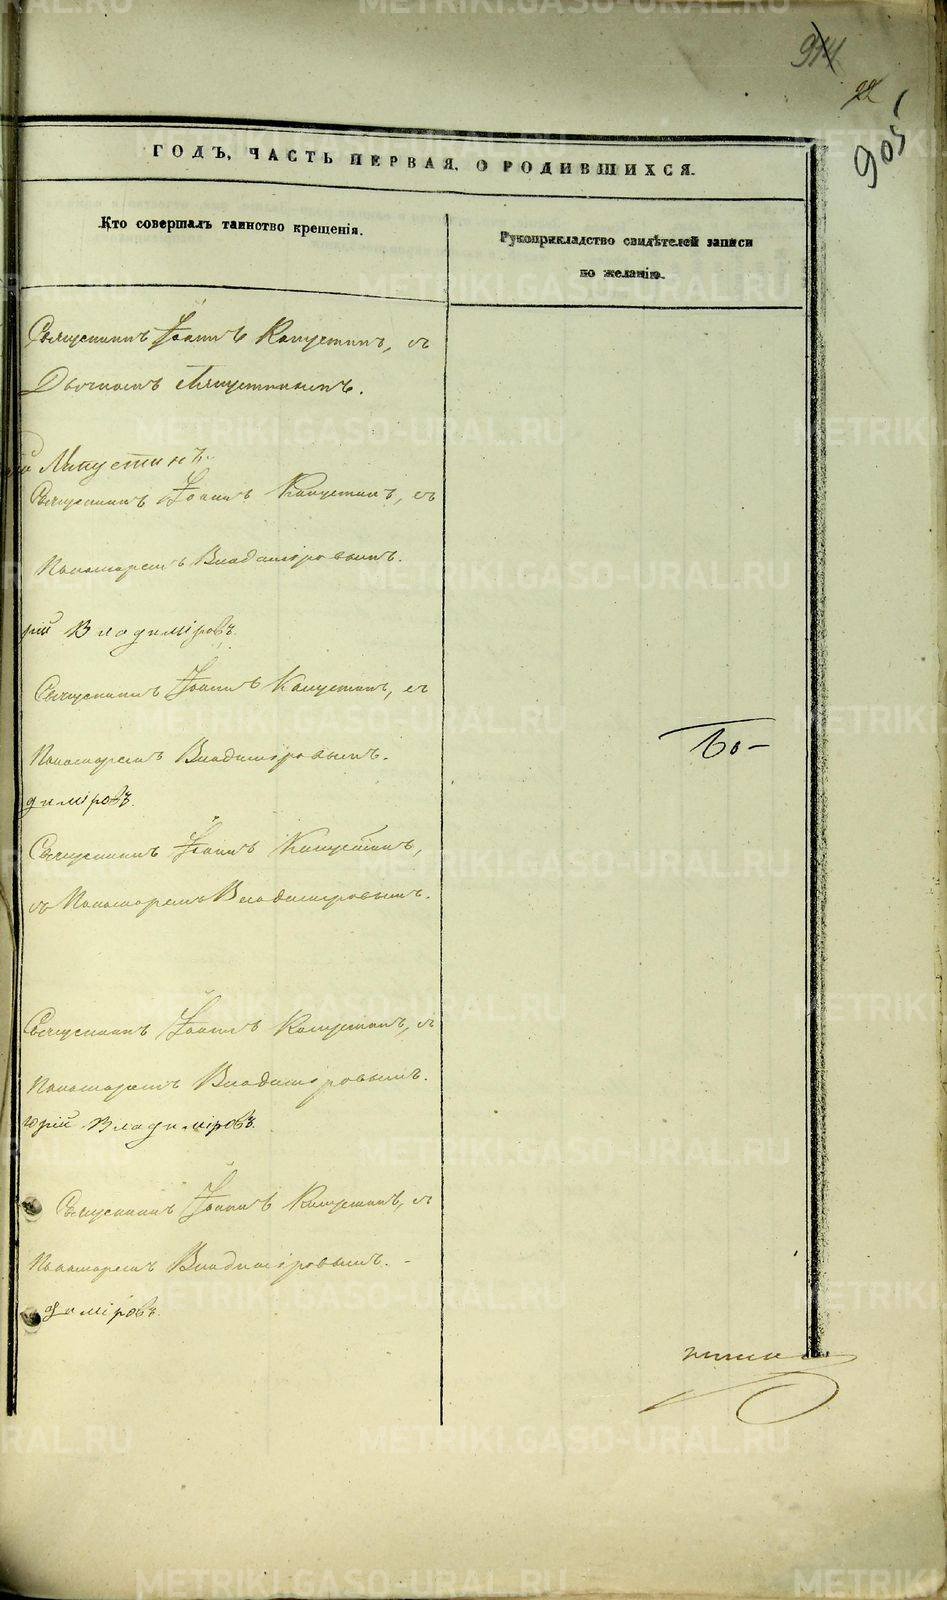 914
22
905
ГОДЪ, ЧАСТЬ ПЕРВАЯ, О РОДИВШИХСЯ.
Кто совершалъ таинство крещенія.
Рукоприкладство свидѣтелей записи
по желанію.
Священникъ Іоаннъ Капустинъ, съ
Дьячкомъ
Священникъ Іоаннъ Капустинъ, съ
Пономаремъ Владиміровымъ.
рій Владиміровъ.
Священникъ Іоаннъ Капустинъ, съ
Пономаремъ Владиміровымъ.
диміровъ.
Священникъ Іоаннъ Капустинъ,
съ Пономаремъ Владиміровымъ.
Священникъ Іоаннъ Капустинъ, съ
Пономаремъ Владиміровымъ.
юрій Владиміровъ.
Священникъ Іоаннъ Капустинъ, съ
Пономаремъ Владиміровымъ. -
диміровъ.
METRIKI.GASO-URAL.RU